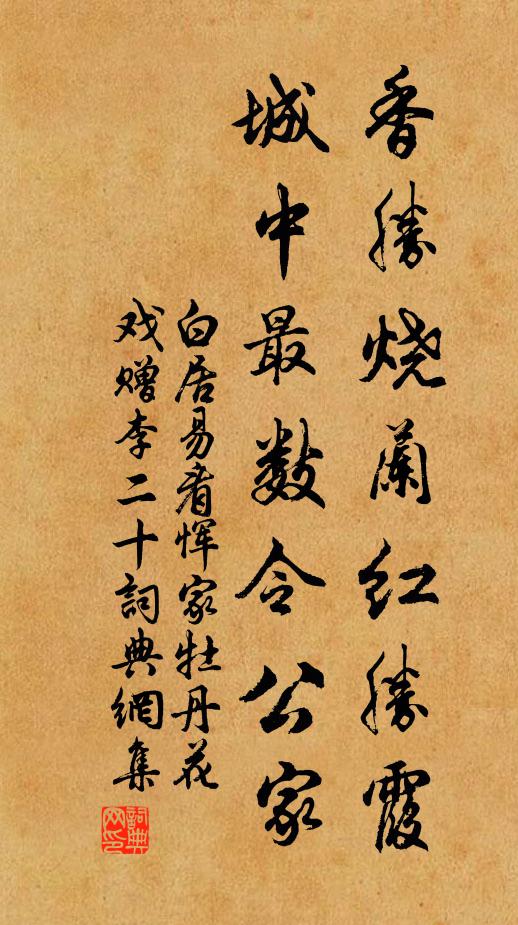 香勝烧蘭红勝霞
城中最数令公家
白居易看恽家牡丹花
戏赠李二十詞典網集
詞典网印